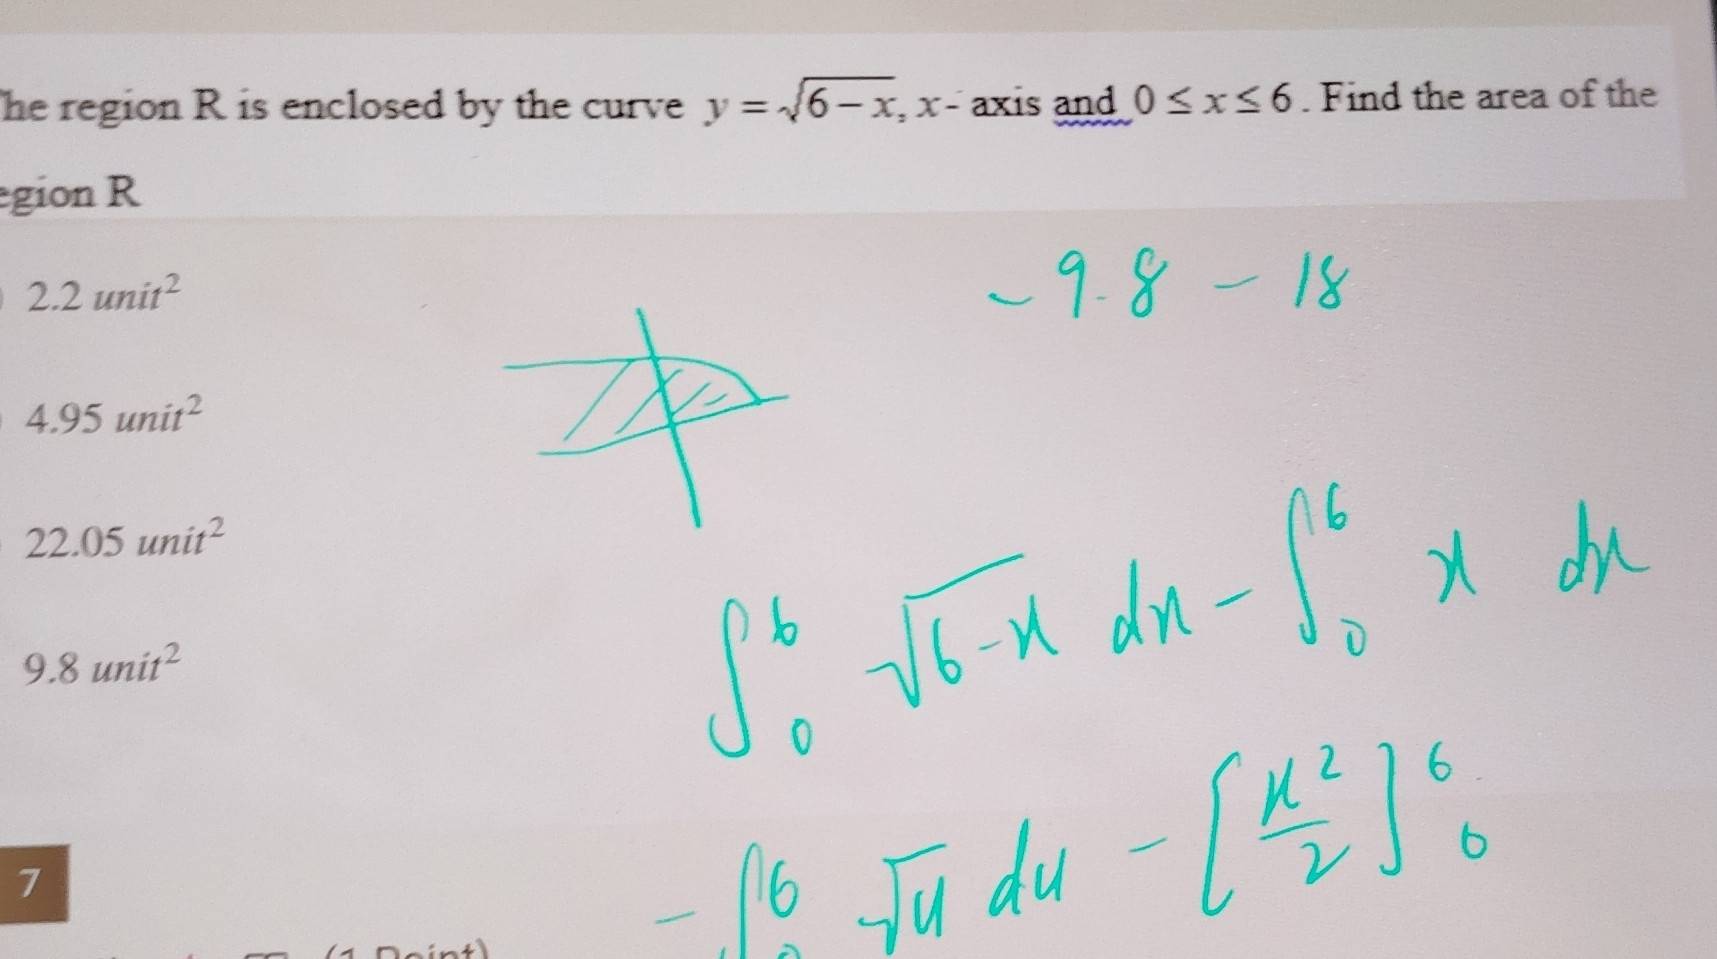 he region R is enclosed by the curve y = √(6 − x), x- axis and 0 ≤ x ≤ 6. Find the area of the
egion R
2.2 unit²
4.95 unit²
22.05 unit²
9.8 unit²
- 9.8 - 18
∫₀⁶ √(6-x) dx - ∫₀⁶ x dx
- ∫₀⁶ √u du - [x²/2]₀⁶
7
(1 Point)